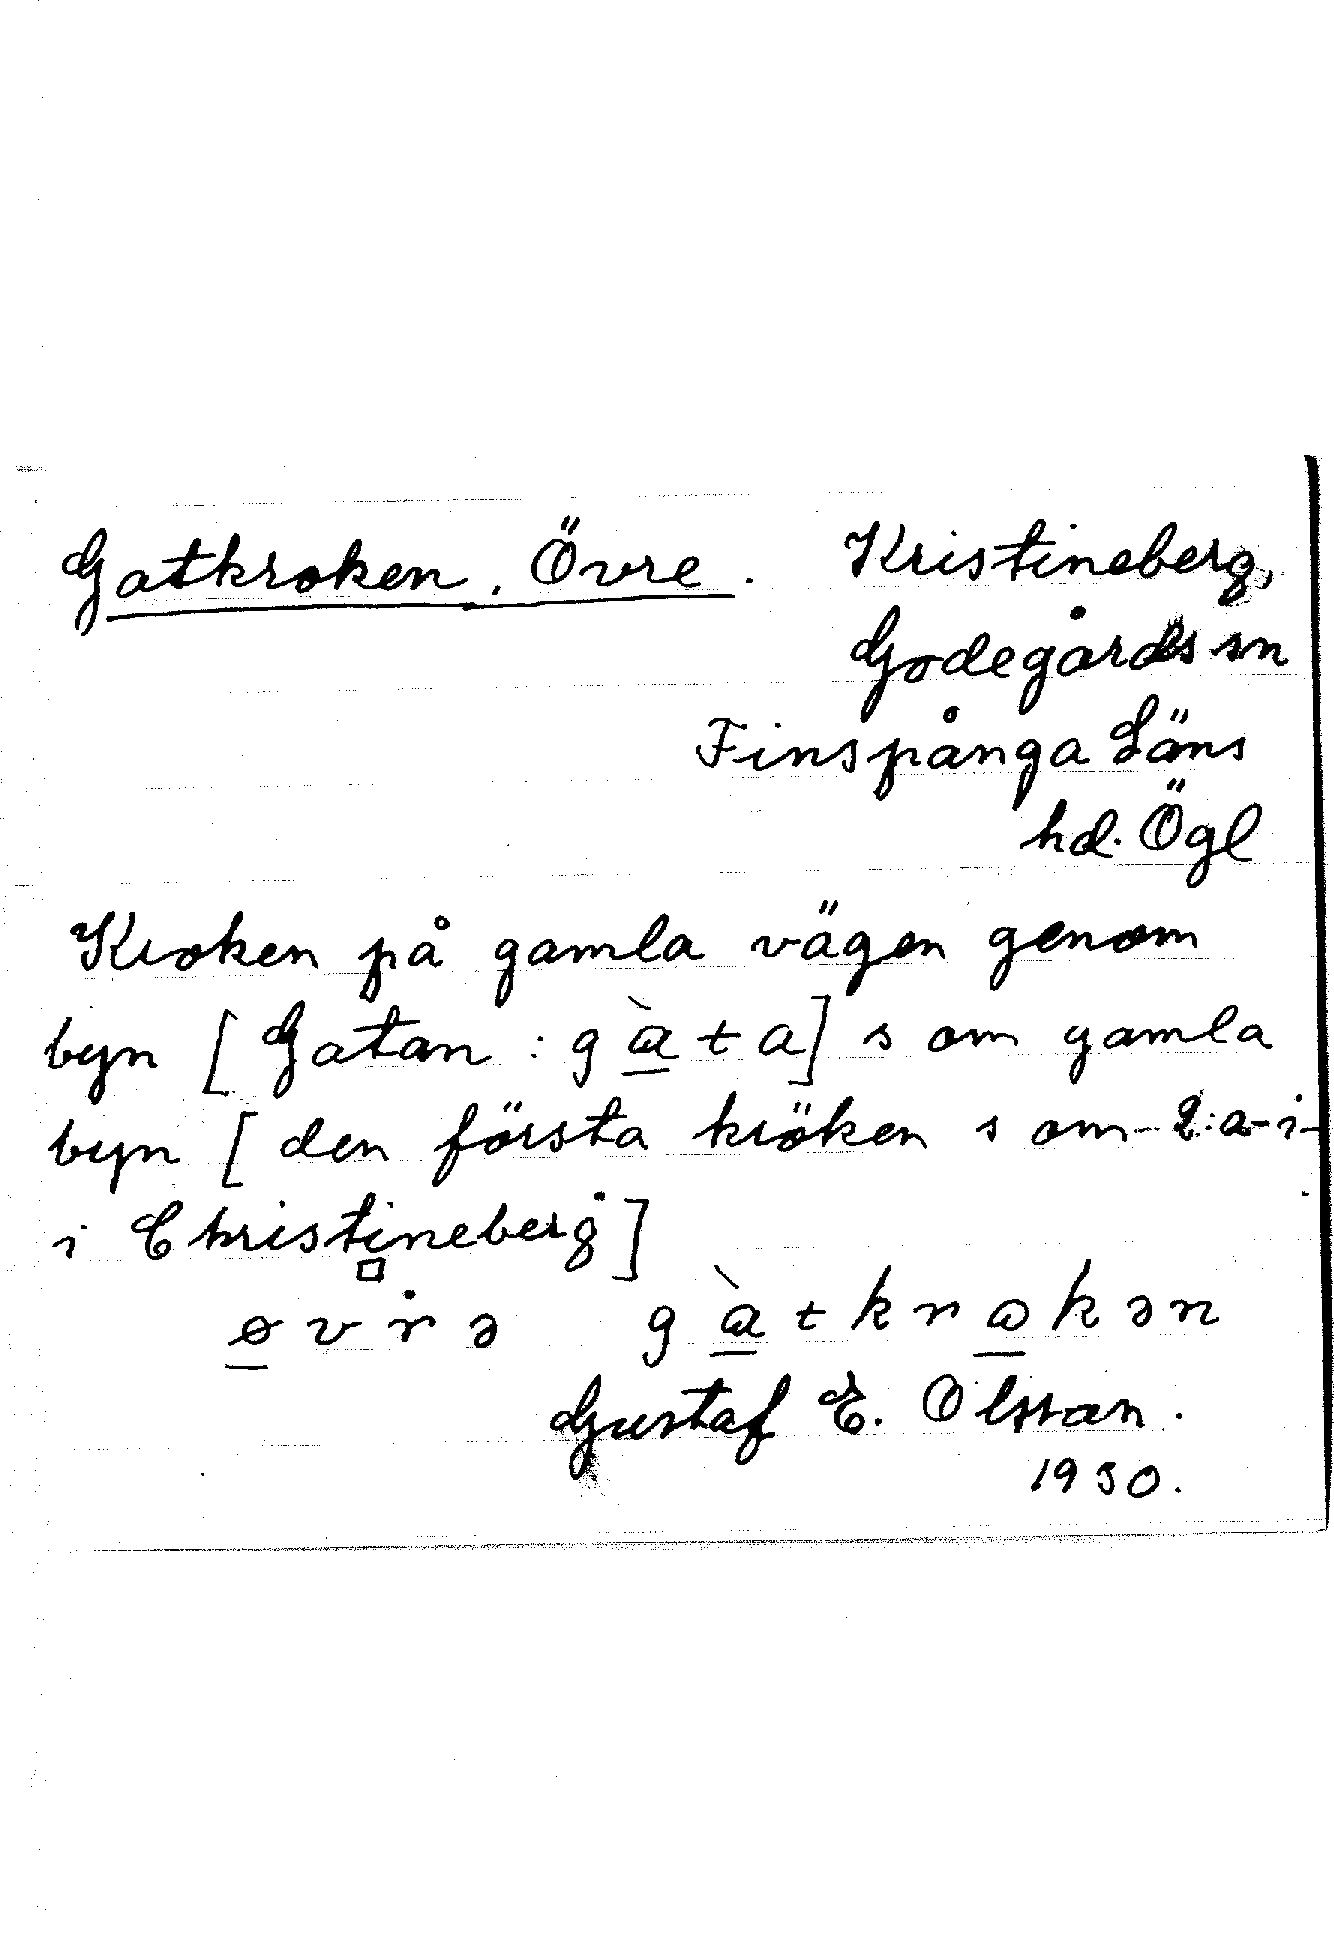 Gatkroken, Övre. Kristineberg,
Godegårds sn
Finspånga Läns
hd. Ögl
Kroken på gamla vägen genom
byn [Gatan : gàta] s om gamla
byn [den första kröken s om
i Christineberg]
øvrə gàtkrokən
Gustaf E. Olsson.
1930.